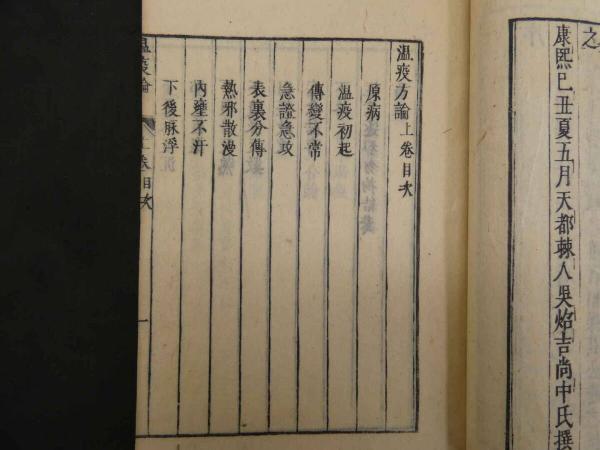 之
康熙已丑夏五月天都棘人吳焰吉尚中氏撰
溫疫方論上卷目次
原病
溫疫初起
傳變不常
急證急攻
表裏分傳
熱邪散漫
內壅不汗
下後脉浮
溫疫論 上卷目次 一